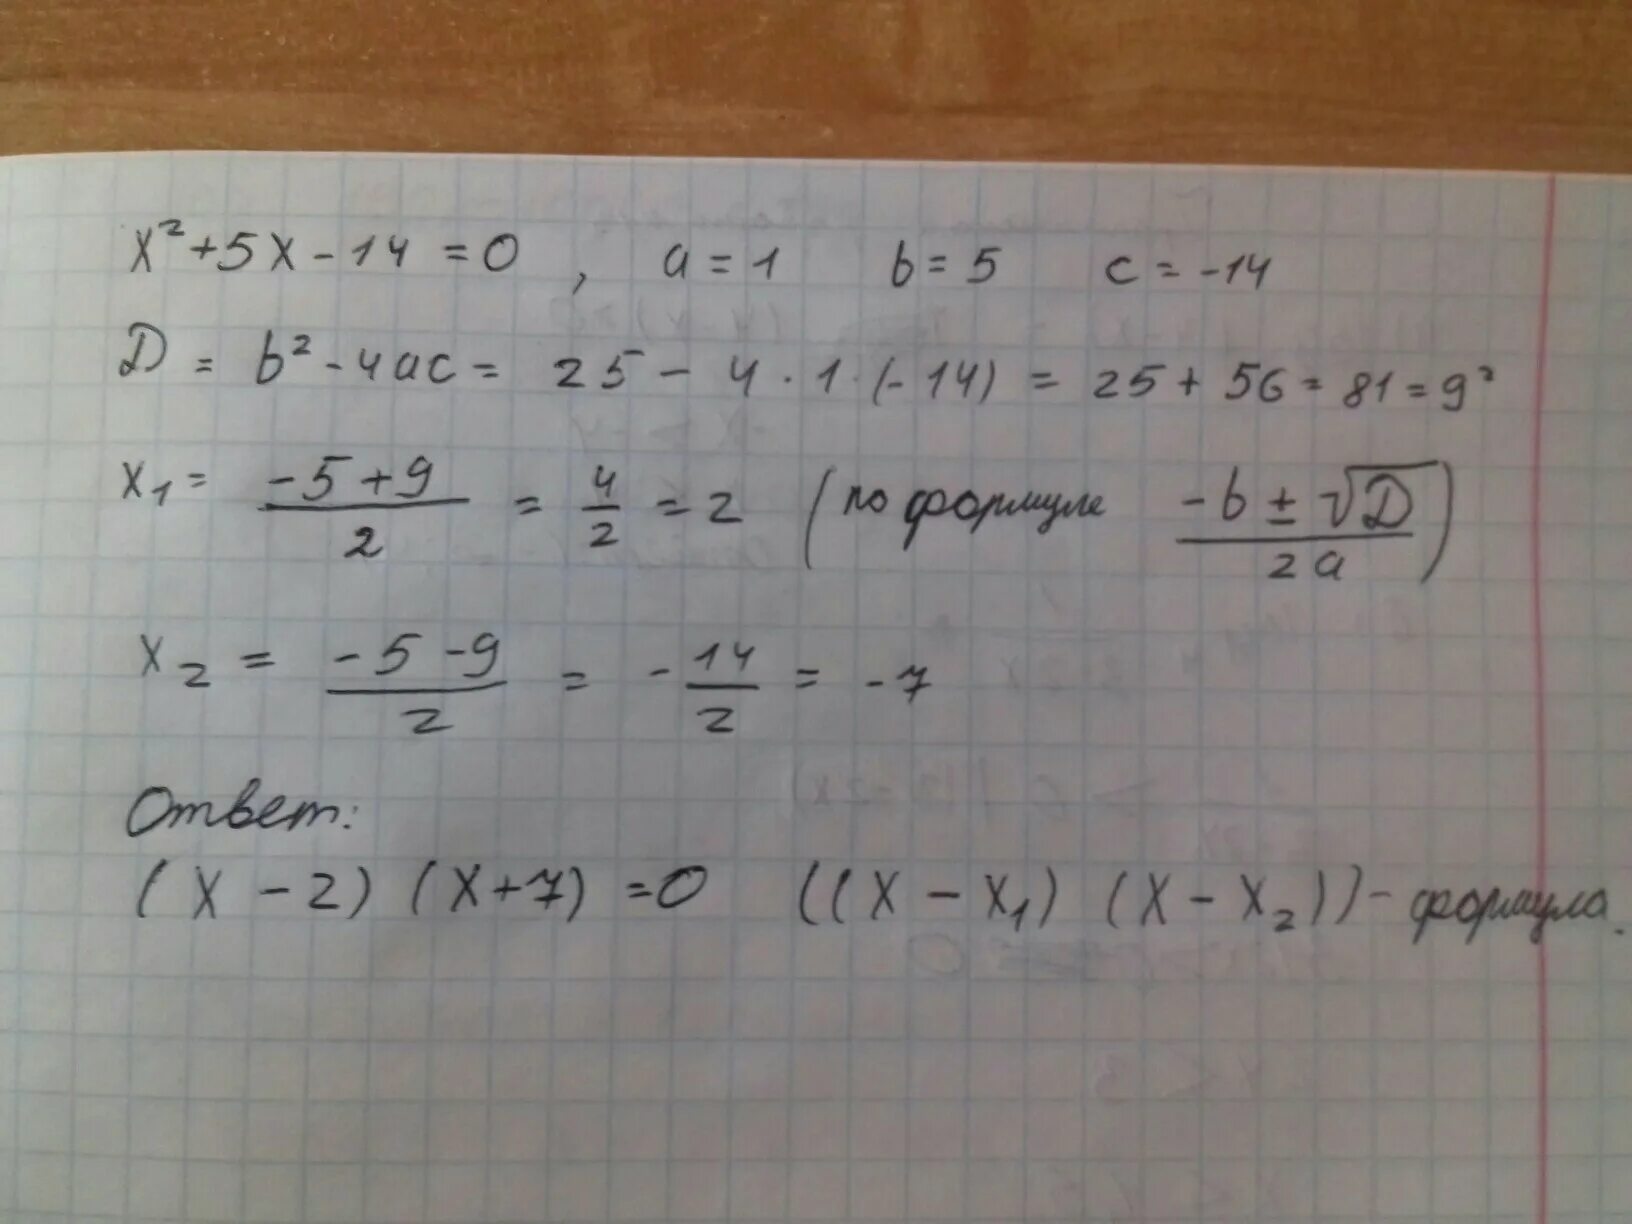 x² + 5x - 14 = 0 , a = 1 b = 5 c = -14
D = b² - 4ac = 25 - 4 · 1 · (-14) = 25 + 56 = 81 = 9²
x₁ = (-5 + 9)/2 = 4/2 = 2 (по формуле (-b ± √D)/2a)
x₂ = (-5 - 9)/2 = -14/2 = -7
Ответ:
(x - 2) (x + 7) = 0 ((x - x₁) (x - x₂)) - формула.